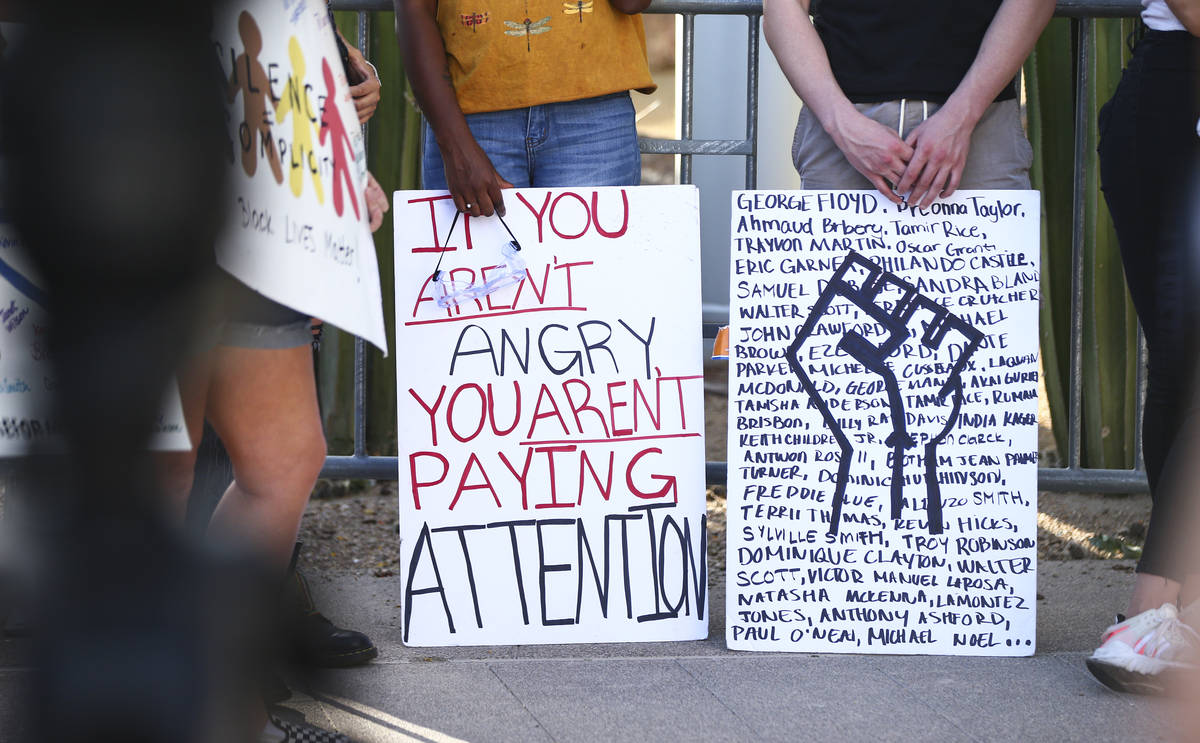 SILENCE
COMPLICITY
Black LIVES Matter!
IF YOU
AREN'T
ANGRY,
YOU AREN'T
PAYING
ATTENTION
GEORGE FLOYD, Breonna Taylor,
Ahmaud Arbery, Tamir Rice,
TRAYVON MARTIN, Oscar Grant,
ERIC GARNER, PHILANDO CASTILE,
SAMUEL SANDRA BLAND
WALTER SCOTT, CRUTCHER
JOHN CRAWFORD, MICHAEL
BROWN, EZELL FORD, DANTE
PARKER, MICHELLE CUSSEAUX, LAQUAN
MCDONALD, GEORGE MANN, AKAI GURLEY
TANISHA ANDERSON, TAMIR RICE, RUMAIN
BRISBON, BILLY RAY DAVIS, INDIA KAGER
KEITH CHILDRESS JR, STEPHEN CLARCK,
ANTWON ROSE II, BOTHAM JEAN
TURNER, DOMINIC HUTCHINSON,
FREDDIE BLUE, ALONZO SMITH,
TERRILL THOMAS, KEVIN HICKS,
SYLVILLE SMITH, TROY ROBINSON
DOMINIQUE CLAYTON, WALTER
SCOTT, VICTOR MANUEL LAROSA,
NATASHA MCKENNA, LAMONTEZ
JONES, ANTHONY ASHFORD,
PAUL O'NEAL, MICHAEL NOEL...